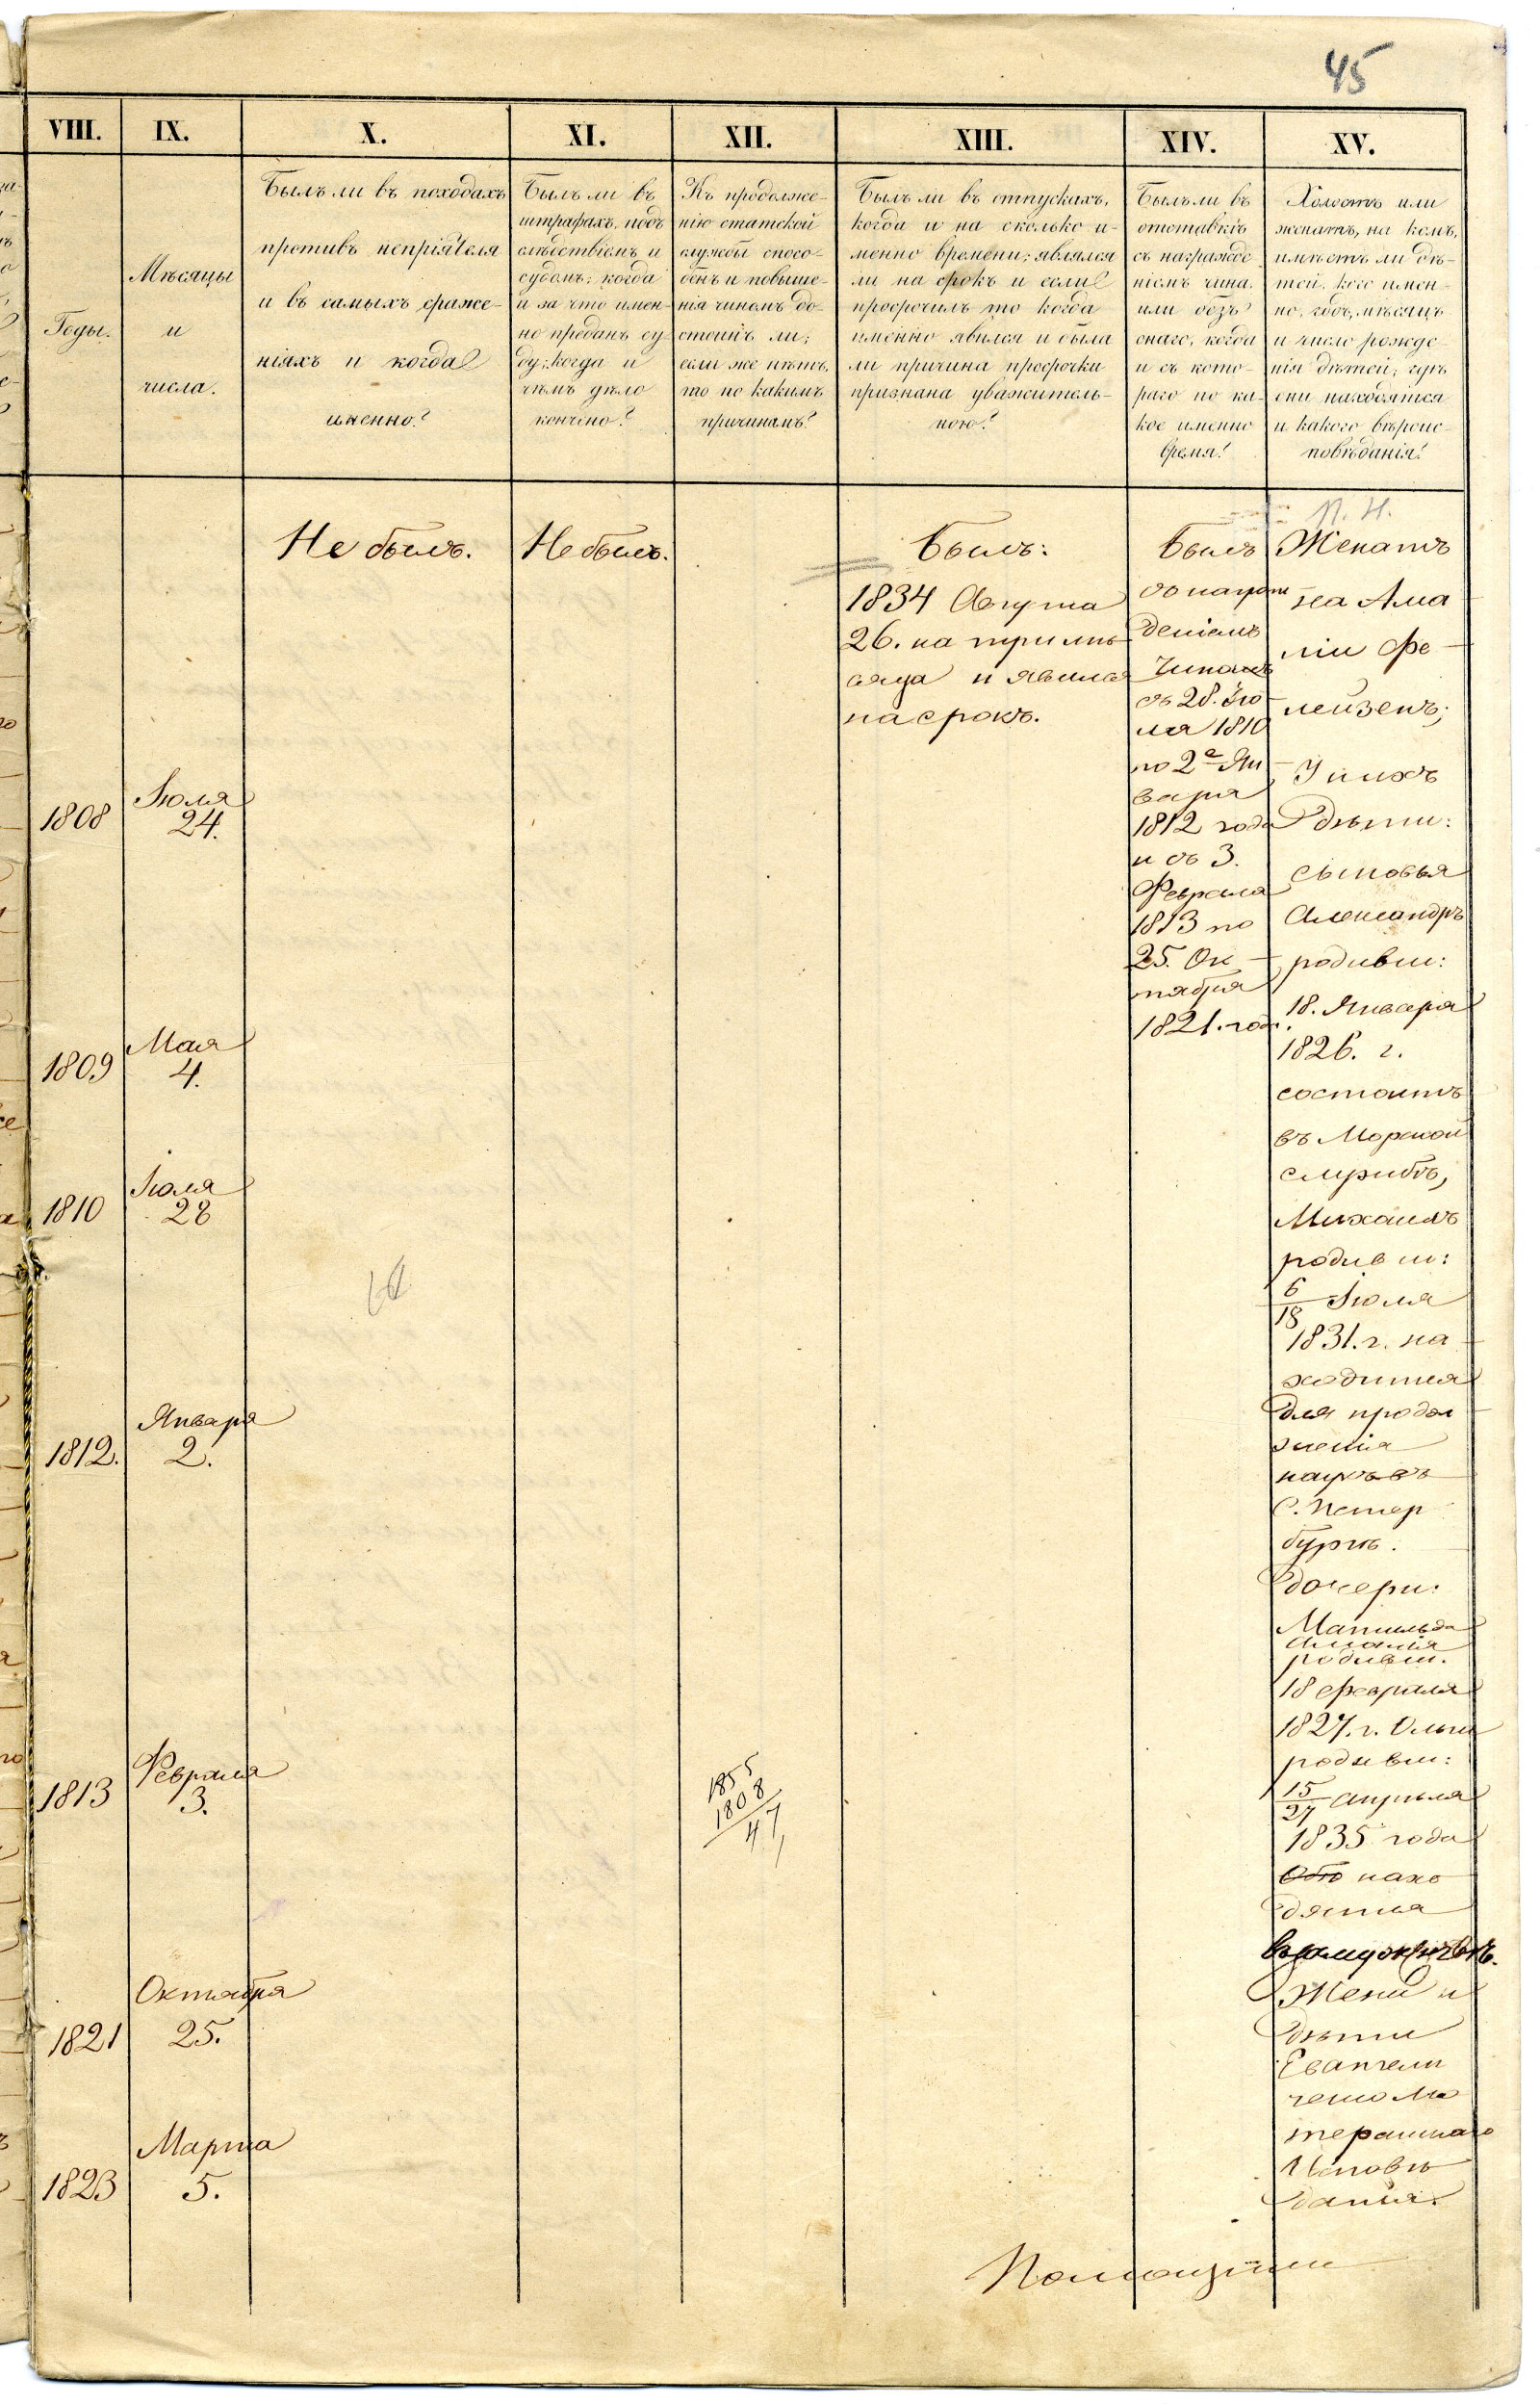 45
VIII.
IX.
X.
XI.
XII.
XIII.
XIV.
XV.
Годы.
Мѣсяцы
и
числа.
Былъ ли въ походахъ
противъ непріятеля
и въ самыхъ сраже-
ніяхъ и когда
именно?
Былъ ли въ
штрафахъ, подъ
слѣдствіемъ и
судомъ; когда
и за что имен-
но преданъ су-
ду; когда и
чѣмъ дѣло
кончено?
Къ продолже-
нію статской
службы спосо-
бенъ и повыше-
нія чиномъ до-
стоинъ ли;
если же нѣтъ,
то по какимъ
причинамъ?
Былъ ли въ отпускахъ,
когда и на сколько и-
менно времени; являлся
ли на срокъ и если
просрочилъ то когда
именно явился и была
ли причина просрочки
признана уважитель-
ною?
Былъ ли въ
отставкѣ
съ награжде-
ніемъ чина
или безъ
онаго, когда
и съ кото-
раго по ка-
кое именно
время?
Холостъ или
женатъ, на комъ,
имѣетъ ли дѣ-
тей, кого имен-
но, годъ, мѣсяцъ
и число рожде-
нія дѣтей; гдѣ
они находятся
и какого вѣроис-
повѣданія?
1808
Іюля
24.
1809
Мая
4.
1810
Іюля
28
1812.
Января
2.
1813
Февраля
3.
1821
Октября
25.
1823
Марта
5.
Не былъ.
Не былъ.
1855
1808
47
Былъ:
1834 Августа
26. на три мѣ
сяца и явился
на срокъ.
Былъ
съ награж
деніемъ
Чиномъ
съ 28. Ію
ля 1810
по 2е Ян
варя
1812 года
и съ 3.
Февраля
1813 по
25. Ок
тября
1821. года.
Женатъ
на Ама
ліи Фе
лейзенъ;
У нихъ
дѣти:
сыновья
Александръ
родивш:
18. Января
1826. г.
состоитъ
въ Морской
службѣ,
Михаилъ
родивш:
6/18 Іюля
1831. г. на
ходится
для продол
женія
наукъ въ
С. Петер
бургѣ.
дочери:
Матильда
Амалія
родивш.
18 февраля
1827. г. Ольга
родивш:
15/27 Апрѣля
1835 года
нахо
дятся
Жена и
дѣти
Евангели
ческо Лю
теранскаго
Исповѣ
данія.